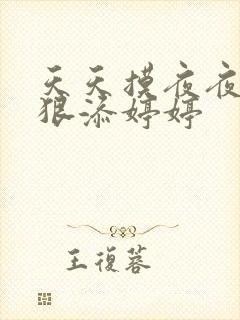 天天摸夜夜
狠添婷婷
王復蓉